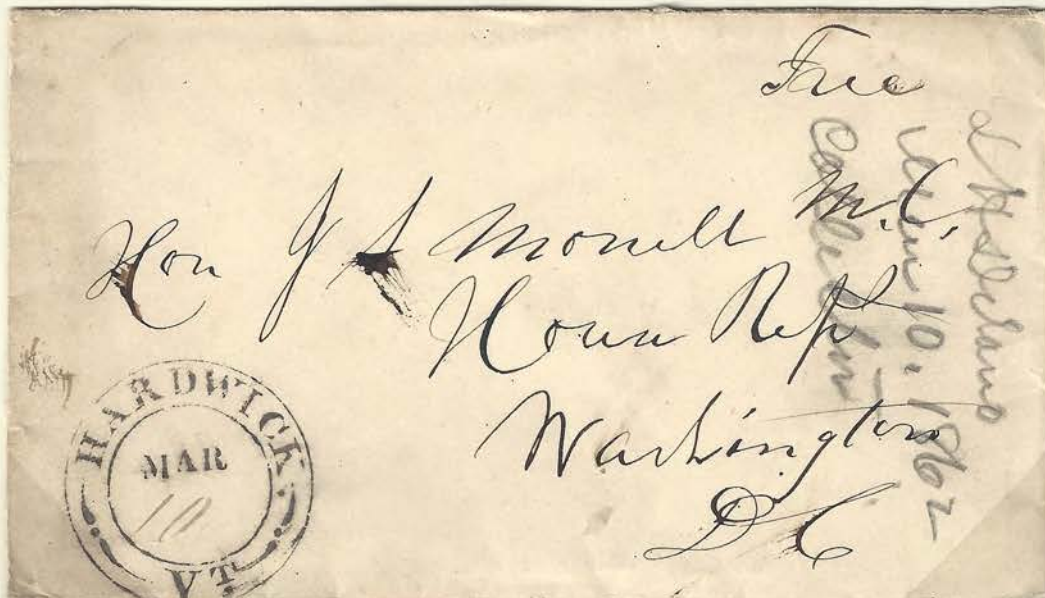 Free
Hon J S Morrill M.C.
House Rep
Washington
D C
HARDWICK
MAR
10
VT
10. 1862